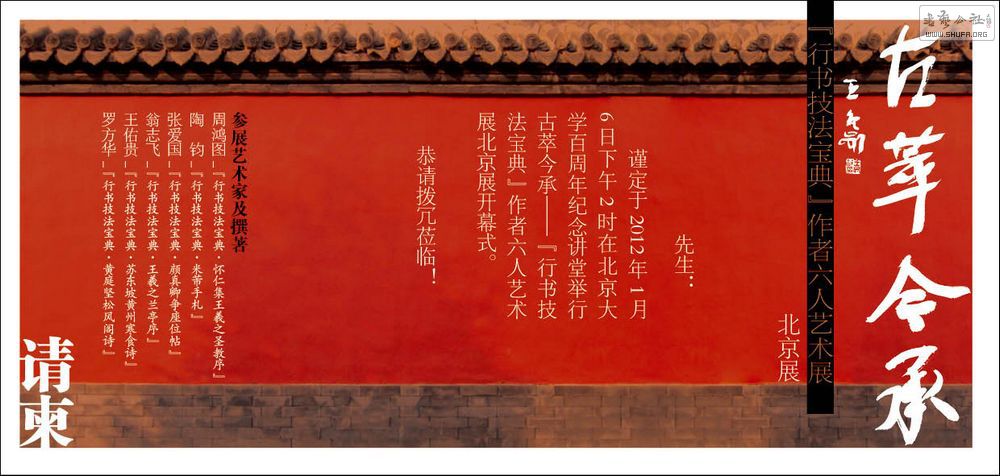 古萃今承
『行书技法宝典』作者六人艺术展
北京展
先生：
谨定于 2012 年 1 月
6 日下午 2 时在北京大
学百周年纪念讲堂举行
古萃今承——『行书技
法宝典』作者六人艺术
展北京展开幕式。
恭请拨冗莅临！
参展艺术家及撰著
周鸿图—『行书技法宝典·怀仁集王羲之圣教序』
陶 钧—『行书技法宝典·米芾手札』
张爱国—『行书技法宝典·颜真卿争座位帖』
翁志飞—『行书技法宝典·王羲之兰亭序』
王佑贵—『行书技法宝典·苏东坡黄州寒食诗』
罗方华—『行书技法宝典·黄庭坚松风阁诗』
请柬
书艺公社
WWW.SHUFA.ORG